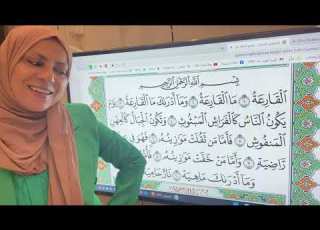 بِسْمِ اللَّهِ الرَّحْمَٰنِ الرَّحِيمِ
الْقَارِعَةُ مَا الْقَارِعَةُ وَمَا أَدْرَىٰكَ مَا الْقَارِعَةُ يَوْمَ
يَكُونُ النَّاسُ كَالْفَرَاشِ الْمَبْثُوثِ وَتَكُونُ الْجِبَالُ كَالْعِهْنِ
الْمَنفُوشِ فَأَمَّا مَن ثَقُلَتْ مَوَٰزِينُهُ فَهُوَ فِي
رَّاضِيَةٍ وَأَمَّا مَنْ خَفَّتْ مَوَٰزِينُهُ
وَمَا أَدْرَىٰكَ مَا هِيَهْ نَارٌ حَامِيَةٌ